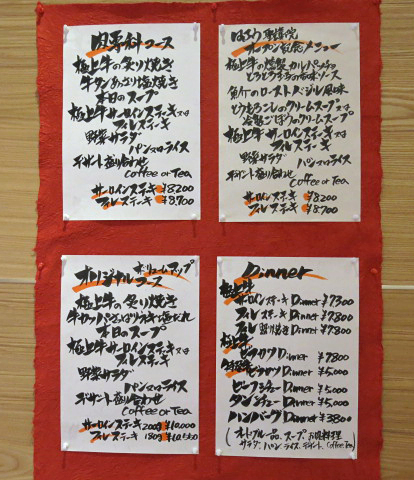 肉専科コース
極上牛の炙り焼き
牛タンあっさり塩焼き
本日のスープ
極上牛サーロインステーキ又は
フィレステーキ
野菜サラダ
パン又はライス
デザート盛り合わせ
coffee or Tea
サーロインステーキ ¥8200
フィレステーキ ¥8,700
オープン記念メニュー
極上牛の燻製カルパッチョ
とうもろこしのクリームスープ又は
冷製ごぼうのクリームスープ
極上牛サーロインステーキ又は
フィレステーキ
野菜サラダ
パン又はライス
デザート盛り合わせ
coffee or Tea
サーロインステーキ ¥8200
フィレステーキ ¥8,700
ボリュームアップ
オリジナルコース
極上牛の炙り焼き
本日のスープ
極上牛サーロインステーキ又は
フィレステーキ
野菜サラダ
パン又はライス
デザート盛り合わせ
coffee or Tea
サーロインステーキ 200g ¥10,000
フィレステーキ 180g
Dinner
極上牛
サーロインステーキ Dinner ¥7300
フィレステーキ Dinner ¥7800
フィレ Dinner ¥7800
極上牛
ビフカツ Dinner ¥7800
ビフカツ Dinner ¥5,000
ビーフシチュー Dinner ¥5,000
タンシチュー Dinner ¥5,000
ハンバーグ Dinner ¥3800
(オードブル一品、スープ、お肉料理
サラダ、パン、ライス、デザート、Coffee, Tea)